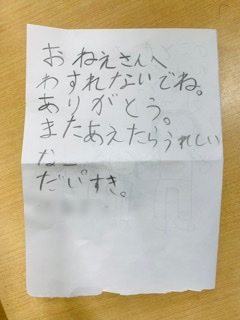 おねえさんへ
わすれないでね。
ありがとう。
またあえたらうれしい
なー。
だいすき。